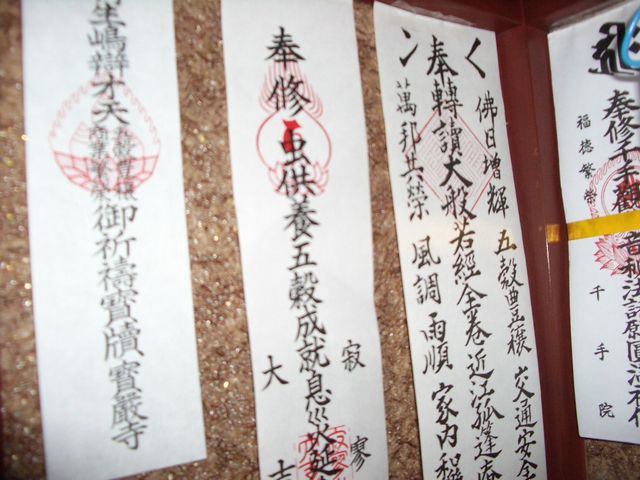 生嶋辯才天
御祈禱寶牘寶嚴寺
奉修 虫供養五穀成就息災延
寂寥
大吉
佛日增輝 五穀豊穣 交通安全
奉轉讀大般若經全巻近江孤篷
萬邦共榮 風調雨順 家内
奉修千手觀音
福德繁榮
千手院